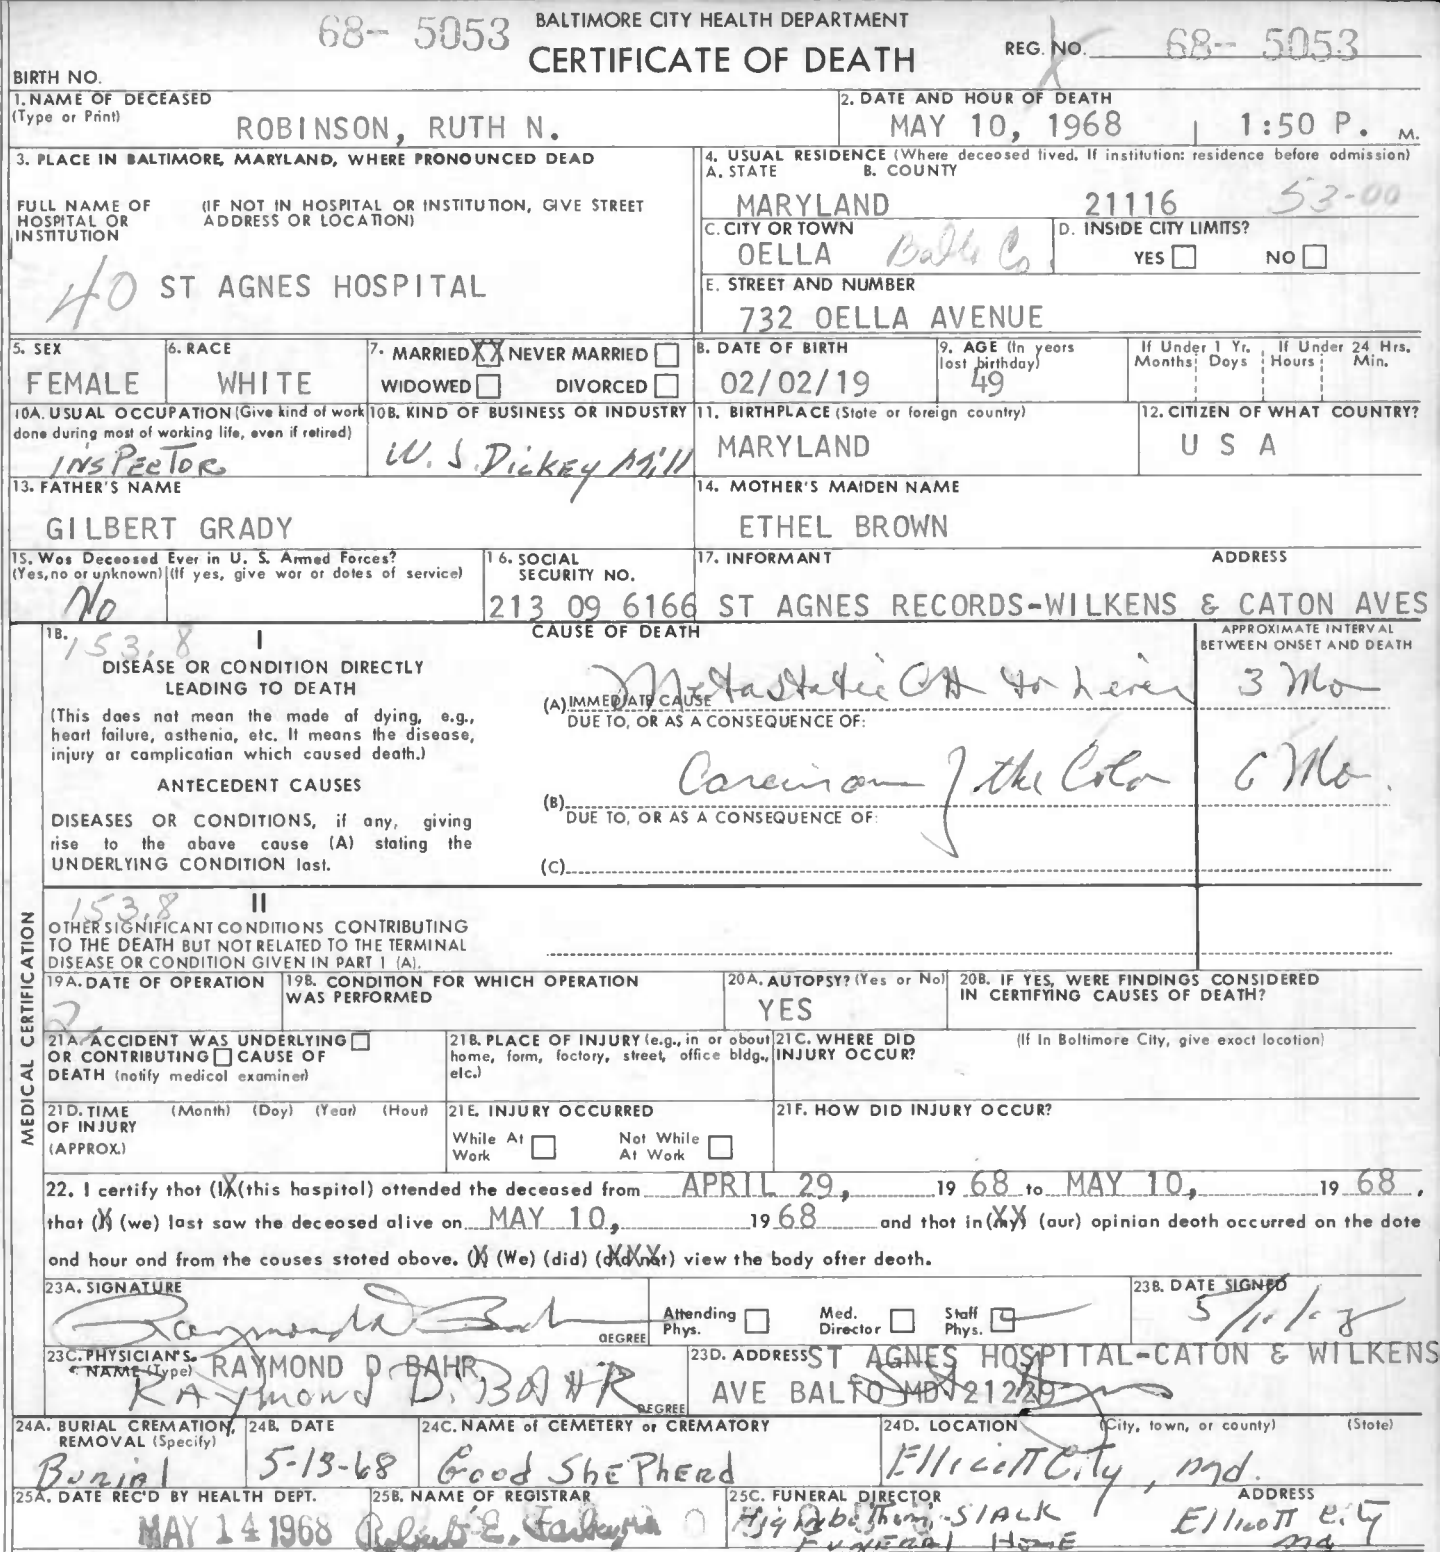 68-- 5053 BALTIMORE CITY HEALTH DEPARTMENT
CERTIFICATE OF DEATH REG. NO. 68-- 5053
BIRTH NO.
1. NAME OF DECEASED (Type or Print) ROBINSON, RUTH N.
2. DATE AND HOUR OF DEATH MAY 10, 1968 1:50 P. M.
3. PLACE IN BALTIMORE, MARYLAND, WHERE PRONOUNCED DEAD
FULL NAME OF HOSPITAL OR INSTITUTION (IF NOT IN HOSPITAL OR INSTITUTION, GIVE STREET ADDRESS OR LOCATION)
40 ST AGNES HOSPITAL
4. USUAL RESIDENCE (Where deceased lived. If institution: residence before admission)
A. STATE B. COUNTY
MARYLAND 21116 53-00
C. CITY OR TOWN D. INSIDE CITY LIMITS?
OELLA Balto Co. YES NO
E. STREET AND NUMBER
732 OELLA AVENUE
5. SEX FEMALE
6. RACE WHITE
7. MARRIED XX NEVER MARRIED
WIDOWED DIVORCED
8. DATE OF BIRTH 02/02/19
9. AGE (In years last birthday) 49
If Under 1 Yr. Months Days If Under 24 Hrs. Hours Min.
10A. USUAL OCCUPATION (Give kind of work done during most of working life, even if retired) INSPECTOR
10B. KIND OF BUSINESS OR INDUSTRY W. J. Dickey Mill
11. BIRTHPLACE (State or foreign country) MARYLAND
12. CITIZEN OF WHAT COUNTRY? U S A
13. FATHER'S NAME GILBERT GRADY
14. MOTHER'S MAIDEN NAME ETHEL BROWN
15. Was Deceased Ever in U. S. Armed Forces? (Yes, no or unknown) (If yes, give war or dates of service) No
16. SOCIAL SECURITY NO. 213 09 6166
17. INFORMANT ADDRESS
ST AGNES RECORDS-WILKENS & CATON AVES
18. 153.8 I CAUSE OF DEATH APPROXIMATE INTERVAL BETWEEN ONSET AND DEATH
DISEASE OR CONDITION DIRECTLY LEADING TO DEATH
(This does not mean the mode of dying, e.g., heart failure, asthenia, etc. It means the disease, injury or complication which caused death.)
(A) IMMEDIATE CAUSE Metastatic CA to Liver 3 Mo
DUE TO, OR AS A CONSEQUENCE OF:
ANTECEDENT CAUSES
DISEASES OR CONDITIONS, if any, giving rise to the above cause (A) stating the UNDERLYING CONDITION last.
(B) Carcinoma of the Colon 6 Mo.
DUE TO, OR AS A CONSEQUENCE OF:
(C)
153.8 II
OTHER SIGNIFICANT CONDITIONS CONTRIBUTING TO THE DEATH BUT NOT RELATED TO THE TERMINAL DISEASE OR CONDITION GIVEN IN PART 1 (A).
MEDICAL CERTIFICATION
19A. DATE OF OPERATION 2
19B. CONDITION FOR WHICH OPERATION WAS PERFORMED
20A. AUTOPSY? (Yes or No) YES
20B. IF YES, WERE FINDINGS CONSIDERED IN CERTIFYING CAUSES OF DEATH?
21A. ACCIDENT WAS UNDERLYING OR CONTRIBUTING CAUSE OF DEATH (notify medical examiner)
21B. PLACE OF INJURY (e.g., in or about home, farm, factory, street, office bldg., etc.)
21C. WHERE DID INJURY OCCUR? (If In Baltimore City, give exact location)
21D. TIME OF INJURY (APPROX.) (Month) (Day) (Year) (Hour)
21E. INJURY OCCURRED
While At Work Not While At Work
21F. HOW DID INJURY OCCUR?
22. I certify that (I) (this hospital) attended the deceased from APRIL 29, 19 68 to MAY 10, 19 68,
that (I) (we) last saw the deceased alive on MAY 10, 19 68 and that in (my) (our) opinion death occurred on the date
and hour and from the causes stated above. (I) (We) (did) (did not) view the body after death.
23A. SIGNATURE Raymond D Bahr DEGREE
Attending Phys. Med. Director Staff Phys.
23B. DATE SIGNED
23C. PHYSICIAN'S NAME (Type) RAYMOND D. BAHR
RAYMOND D. BAHR DEGREE
23D. ADDRESS ST AGNES HOSPITAL-CATON & WILKENS
AVE BALTO MD 21229
24A. BURIAL CREMATION, REMOVAL (Specify) Burial
24B. DATE 5-13-68
24C. NAME of CEMETERY or CREMATORY Good Shepherd
24D. LOCATION (City, town, or county) (State) Ellicott City, Md.
25A. DATE REC'D BY HEALTH DEPT. MAY 14 1968
25B. NAME OF REGISTRAR Robert E. Farber
25C. FUNERAL DIRECTOR ADDRESS
Higinbothom-Slack Ellicott City
Funeral Home Md